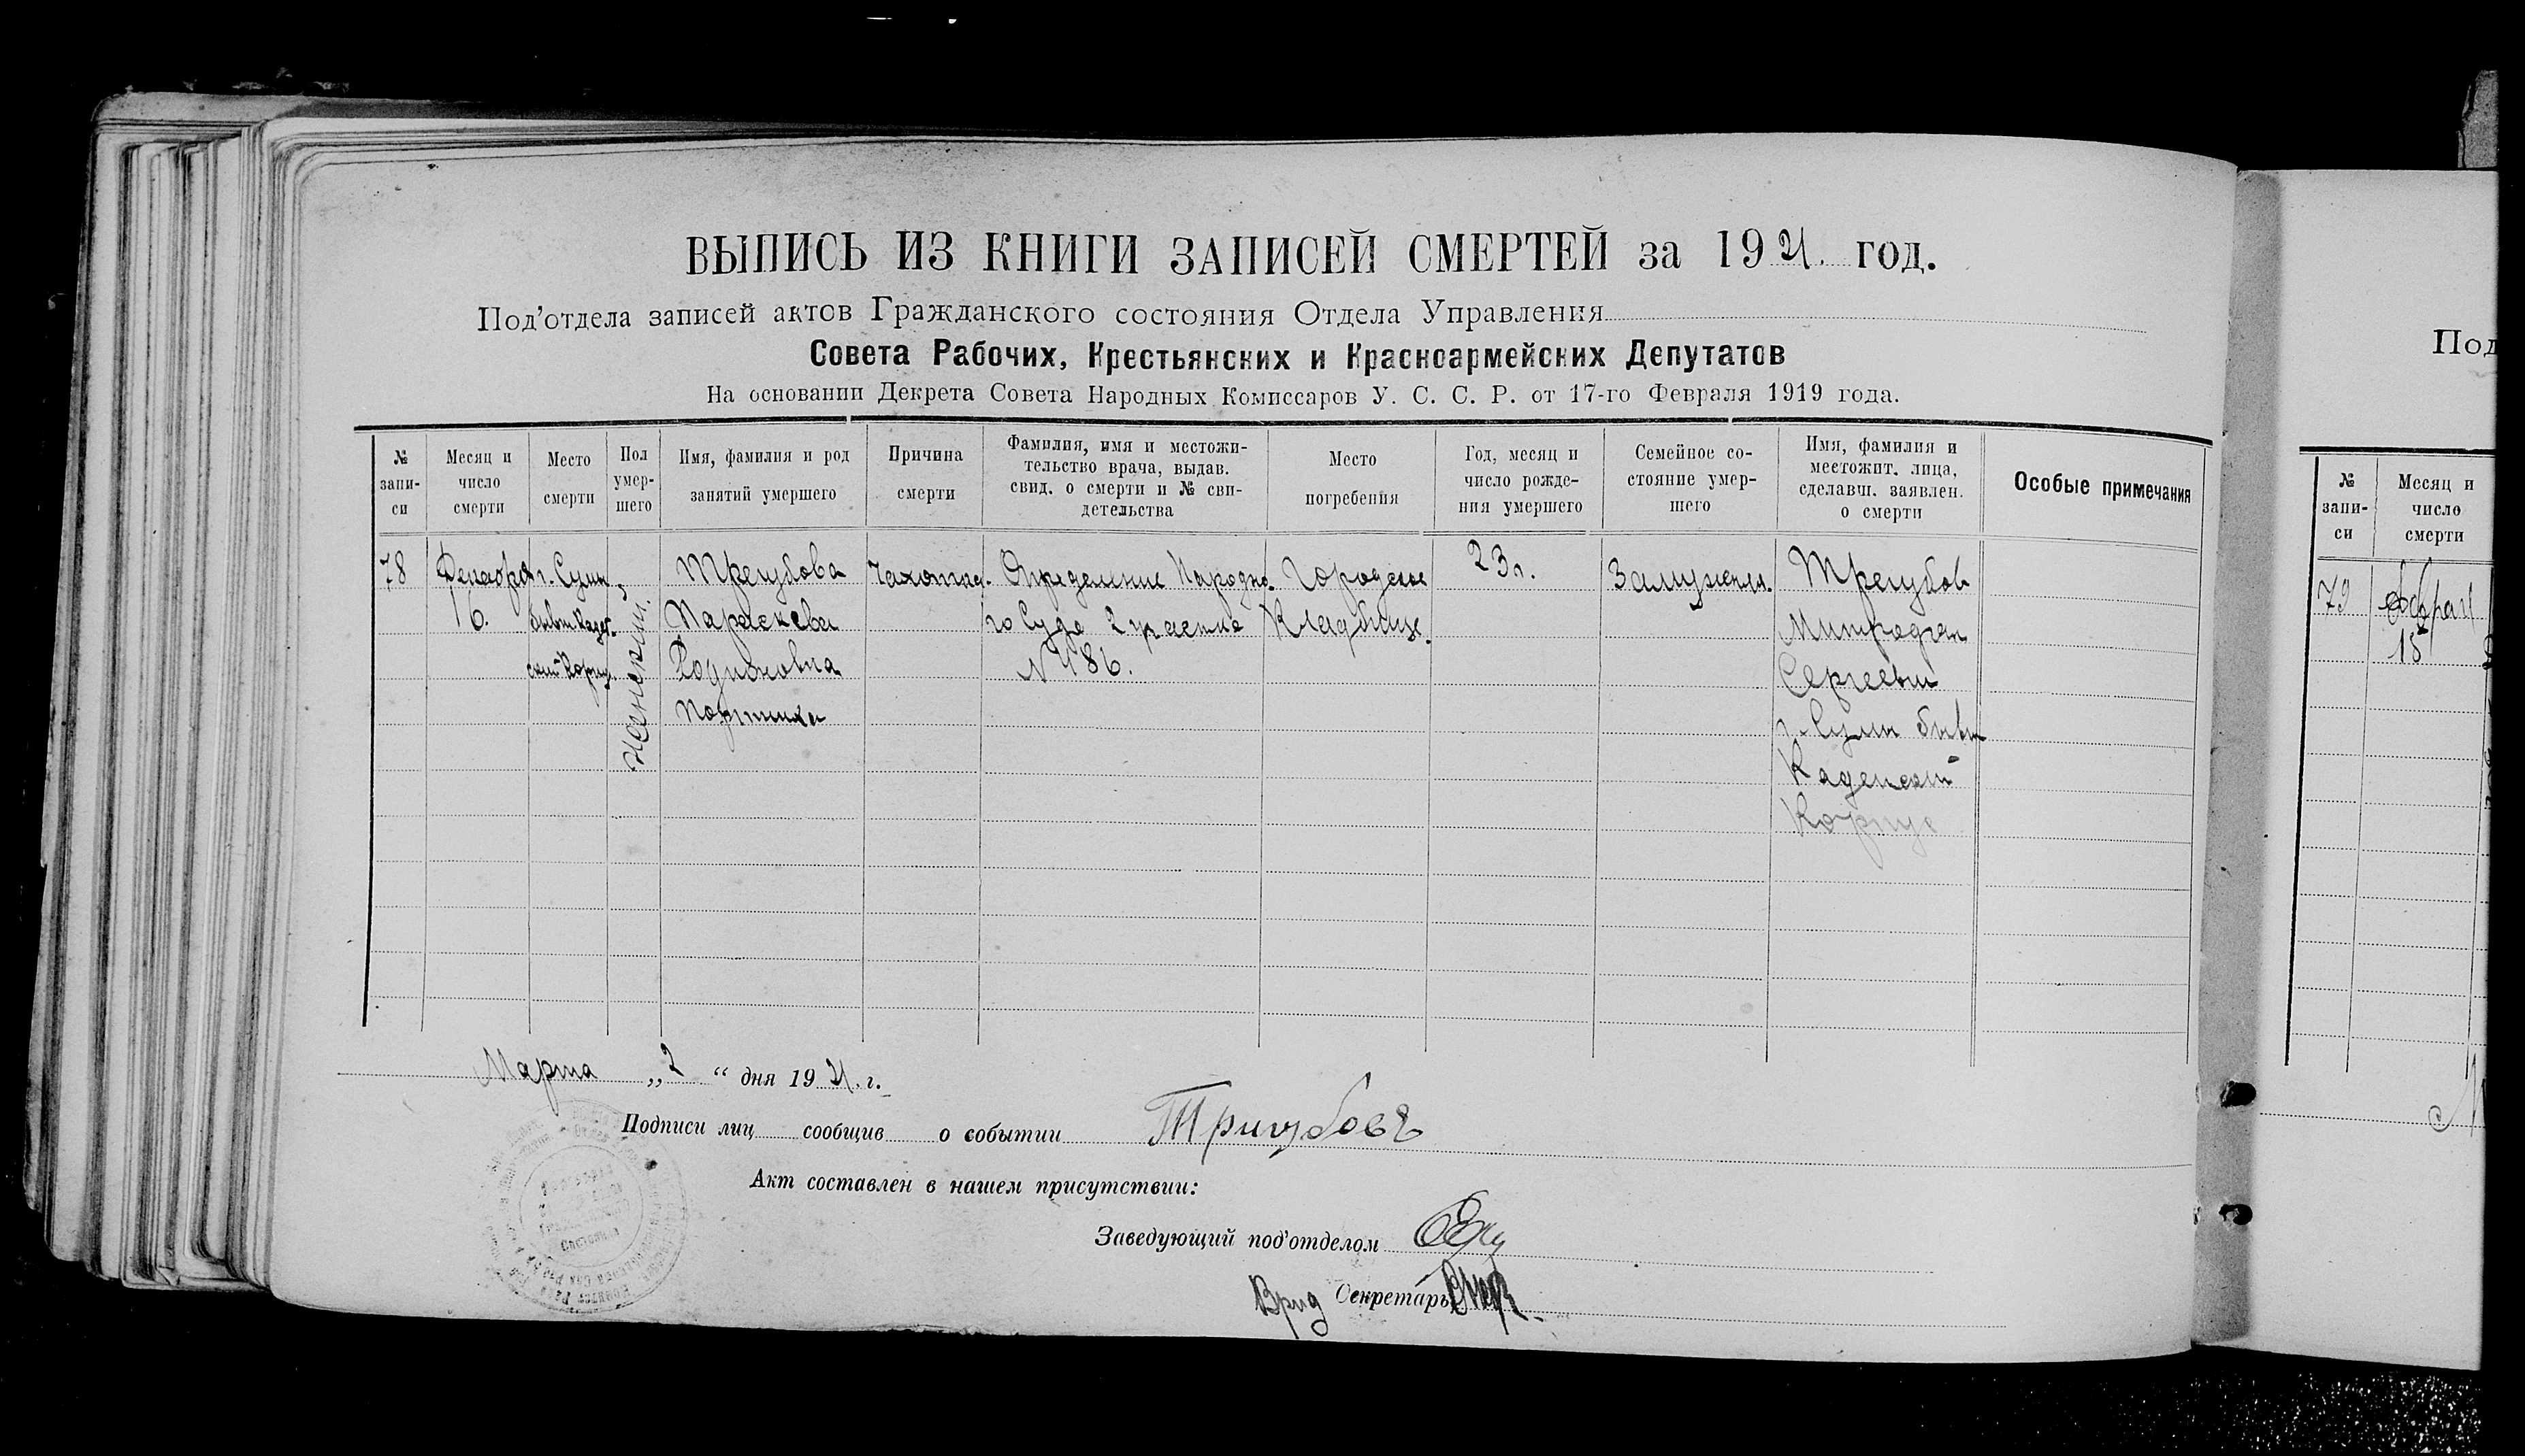 ВЫПИСЬ ИЗ КНИГИ ЗАПИСЕЙ СМЕРТЕЙ за 1921. год.
Под'отдела записей актов Гражданского состояния Отдела Управления
Совета Рабочих, Крестьянских и Красноармейских Депутатов
На основании Декрета Совета Народных Комиссаров У. С. С. Р. от 17-го Февраля 1919 года.
№ запи-си
Месяц и число смерти
Место смерти
Пол умер-шего
Имя, фамилия и род занятий умершего
Причина смерти
Фамилия, имя и местожи-тельство врача, выдав. свид. о смерти и № сви-детельства
Место погребения
Год, месяц и число рожде-ния умершего
Семейное со-стояние умер-шего
Имя, фамилия и местожит. лица, сделавш. заявлен. о смерти
Особые примечания
78
Декабря
16.
г. Сумы,
бывш Кадет.
ский Корпус.
женский.
Трегубова
Параскева
Родионовна
Портниха
Чахотка.
Определение Народно-
го Суда 2 участка
N 486.
Городское
Кладбище.
23 л.
Замужняя.
Трегубов
Митрофан
Сергеевич
г. Сумы бывш
Кадетский
Корпус
Марта „2“ дня 1921. г.
Подписи лиц сообщив о событии Тригубовъ
Акт составлен в нашем присутствии:
Заведующий под'отделом
Врид Секретарь
Состояния
Под
№ запи-си
Месяц и число смерти
79
15